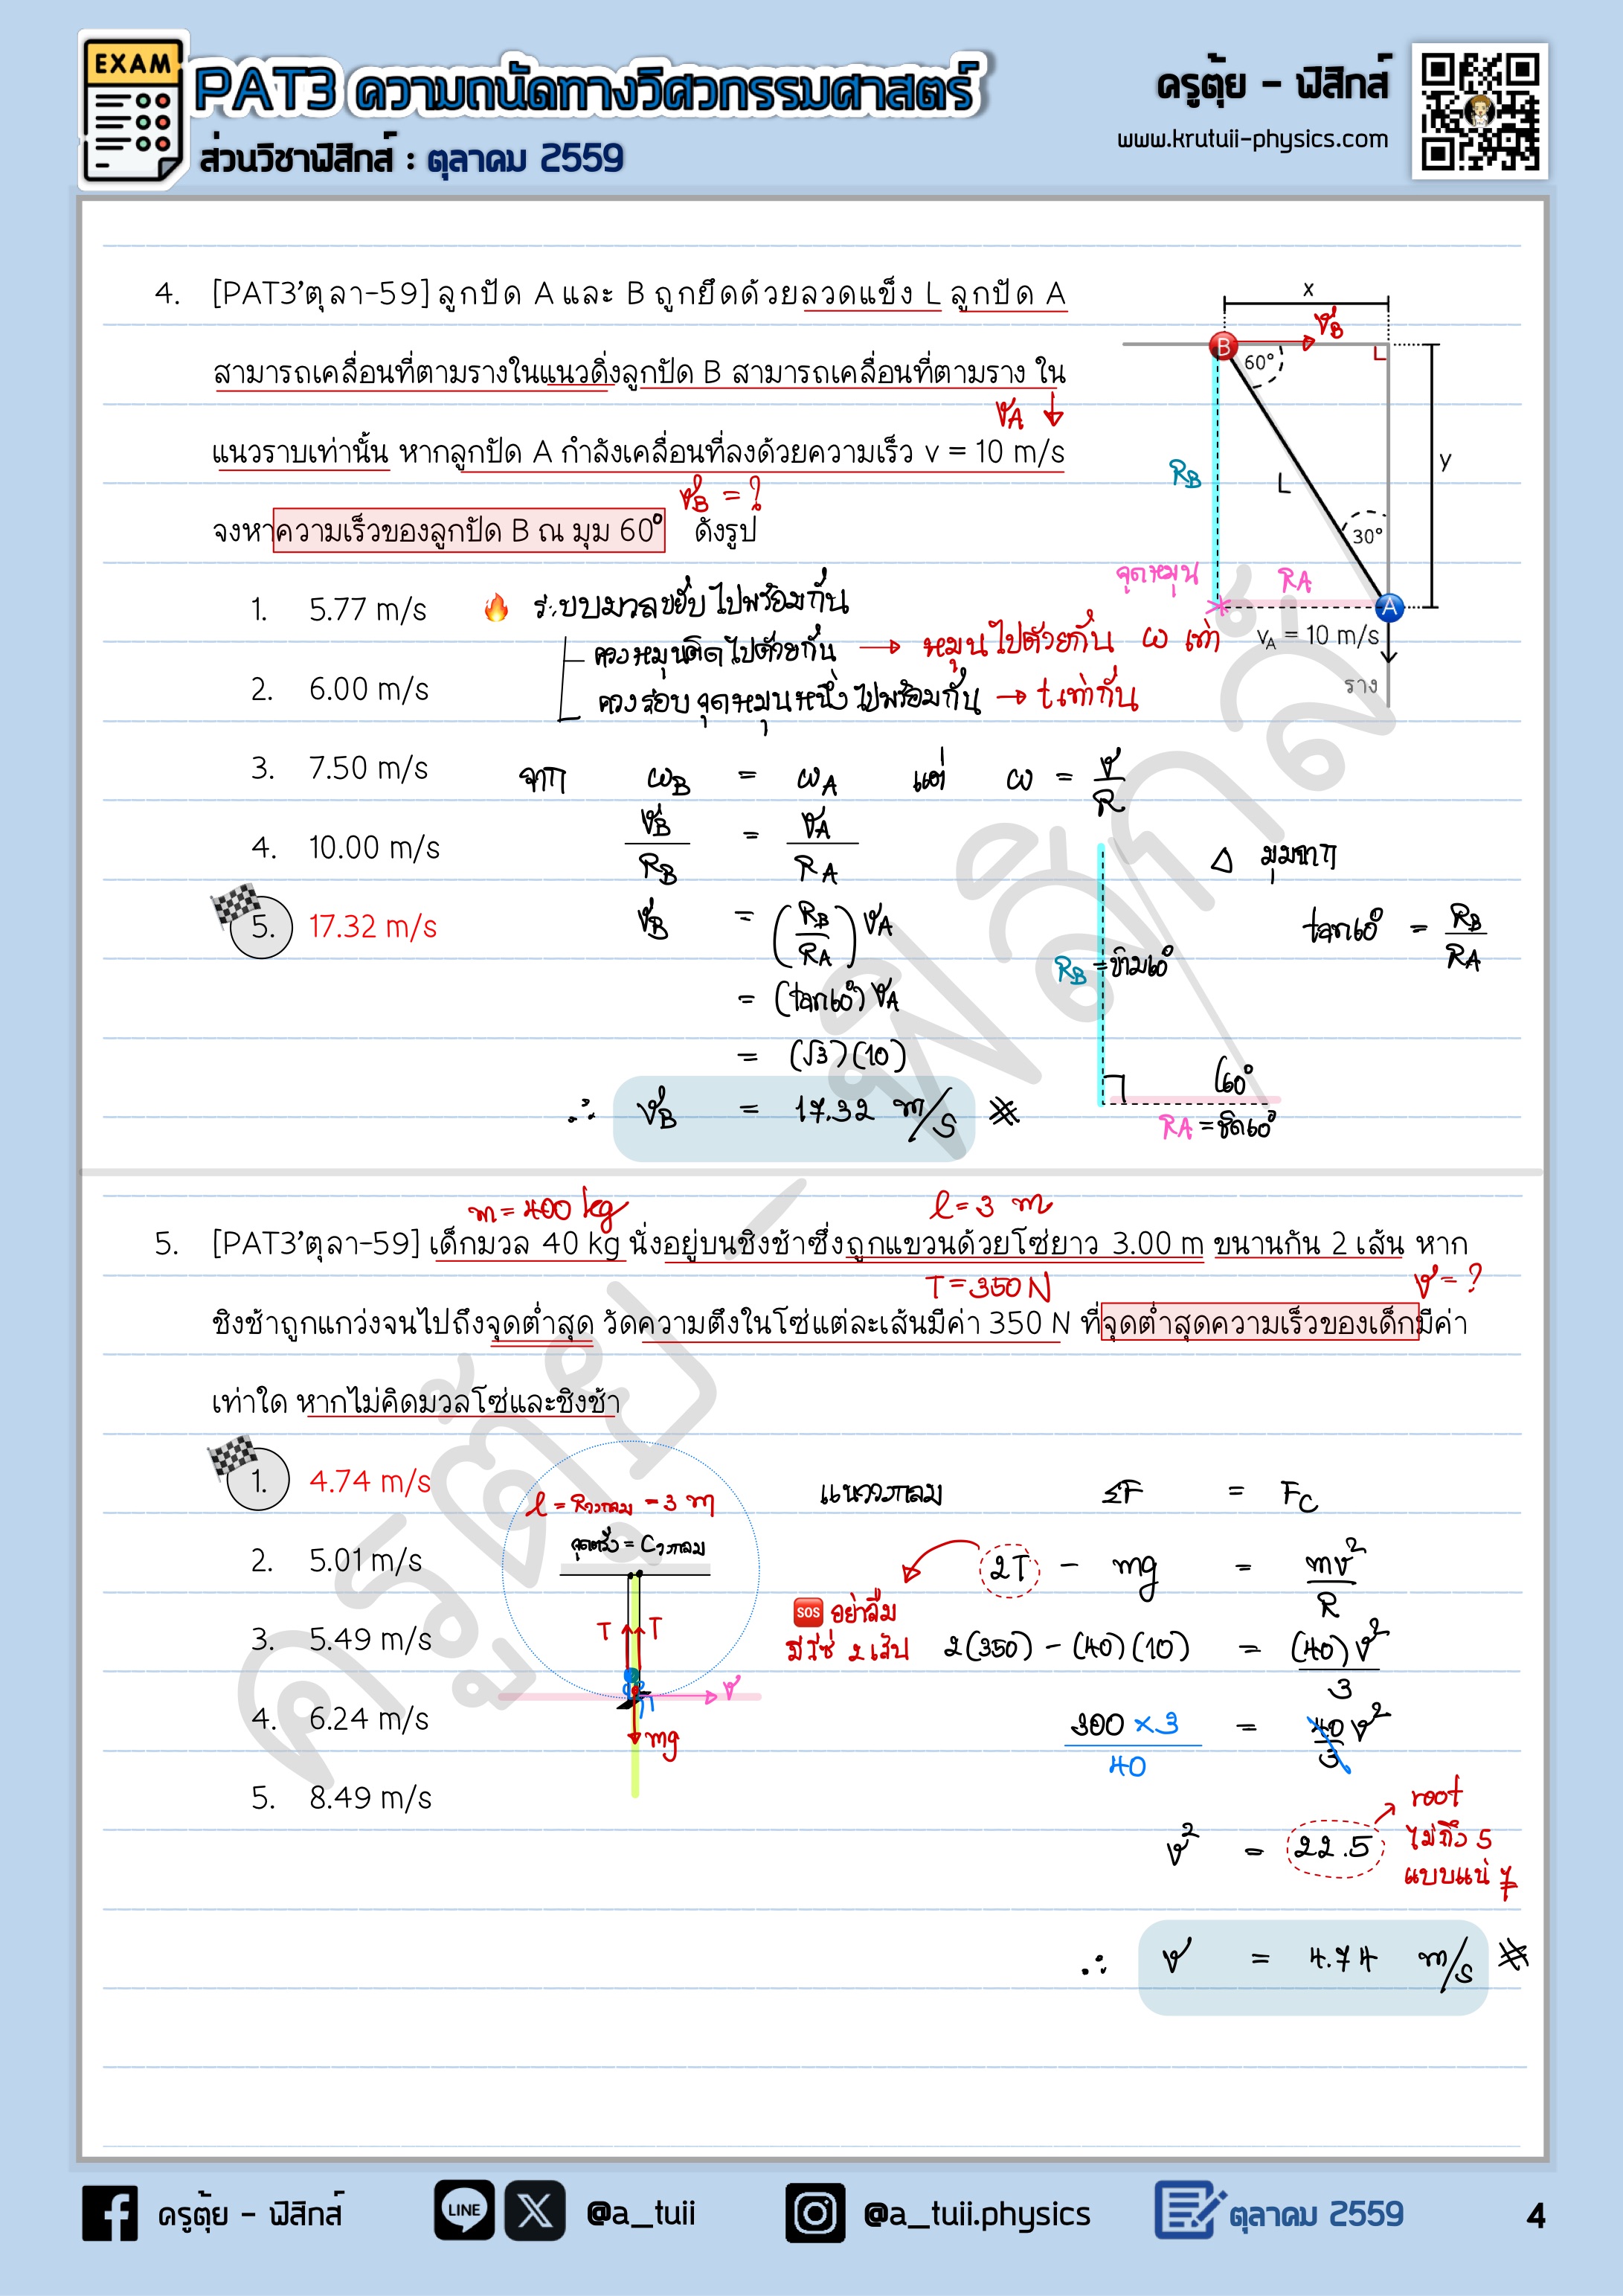 EXAM
PAT3 ความถนัดทางวิศวกรรมศาสตร์
ส่วนวิชาฟิสิกส์ : ตุลาคม 2559
ครูตุ้ย - ฟิสิกส์
www.krutuii-physics.com
4. [PAT3'ตุลา-59] ลูกปัด A และ B ถูกยึดด้วยลวดแข็ง L ลูกปัด A
สามารถเคลื่อนที่ตามรางในแนวดิ่งลูกปัด B สามารถเคลื่อนที่ตามราง ใน
vA ↓
แนวราบเท่านั้น หากลูกปัด A กำลังเคลื่อนที่ลงด้วยความเร็ว v = 10 m/s
vB = ?
จงหาความเร็วของลูกปัด B ณ มุม 60° ดังรูป
x
vB
B
60°
y
RB
L
30°
จุดหมุน
RA
A
vA = 10 m/s
ราง
1. 5.77 m/s
2. 6.00 m/s
3. 7.50 m/s
4. 10.00 m/s
5. 17.32 m/s
ระบบมวลขยับไปพร้อมกัน
ควงหมุนติดไปด้วยกัน → หมุนไปด้วยกัน ω เท่า
ควงรอบจุดหมุนหนึ่งไปพร้อมกัน → t เท่ากัน
จาก ωB = ωA แต่ ω = v/R
vB/RB = vA/RA
vB = (RB/RA) vA
= (tan60°) vA
= (√3)(10)
∴ vB = 17.32 m/s #
△ มุมฉาก
tan60° = RB/RA
RB = ข้าม60°
60°
RA = ชิด60°
m = 400 kg
l = 3 m
5. [PAT3'ตุลา-59] เด็กมวล 40 kg นั่งอยู่บนชิงช้าซึ่งถูกแขวนด้วยโซ่ยาว 3.00 m ขนานกัน 2 เส้น หาก
T = 350 N
v = ?
ชิงช้าถูกแกว่งจนไปถึงจุดต่ำสุด วัดความตึงในโซ่แต่ละเส้นมีค่า 350 N ที่จุดต่ำสุดความเร็วของเด็กมีค่า
เท่าใด หากไม่คิดมวลโซ่และชิงช้า
1. 4.74 m/s
2. 5.01 m/s
3. 5.49 m/s
4. 6.24 m/s
5. 8.49 m/s
l = Rวงกลม = 3 m
จุดตรึง = Cวงกลม
T T
v
mg
แนววงกลม ΣF = FC
2T - mg = mv²/R
SOS อย่าลืม
มีโซ่ 2 เส้น
2(350) - (40)(10) = (40)v²/3
300 × 3/40 = 40/3 v²
v² = 22.5
root
ไม่ถึง 5
แบบแน่ ๆ
∴ v = 4.74 m/s #
ครูตุ้ย - ฟิสิกส์
ครูตุ้ย - ฟิสิกส์
LINE
@a_tuii
@a_tuii.physics
ตุลาคม 2559
4